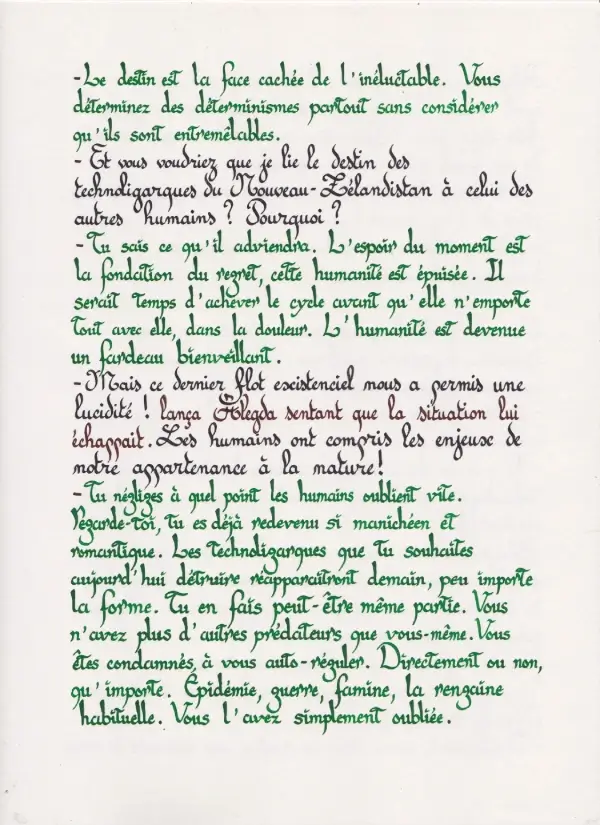 -Le destin est la face cachée de l'inéluctable. Vous
déterminez des déterminismes partout sans considérer
qu'ils sont entremêlables.
- Et vous voudriez que je lie le destin des
technoligarques du Nouveau-Zélandistan à celui des
autres humains ? Pourquoi ?
-Tu sais ce qu'il adviendra. L'espoir du moment est
la fondation du regret, cette humanité est épuisée. Il
serait temps d'achever le cycle avant qu'elle n'emporte
tout avec elle, dans la douleur. L'humanité est devenue
un fardeau bienveillant.
-Mais ce dernier flot existenciel nous a permis une
lucidité ! lança Alegda sentant que la situation lui
échappait. Les humains ont compris les enjeux de
notre appartenance à la nature!
- Tu négliges à quel point les humains oublient vite.
Regarde-toi, tu es déjà redevenu si manichéen et
romantique. Les technoligarques que tu souhaites
aujourd'hui détruire réapparaîtront demain, peu importe
la forme. Tu en fais peut-être même partie. Vous
n'avez plus d'autres prédateurs que vous-même. Vous
êtes condamnés, à vous auto-réguler. Directement ou non,
qu'importe. Épidémie, guerre, famine, la rengaine
habituelle. Vous l'avez simplement oubliée.